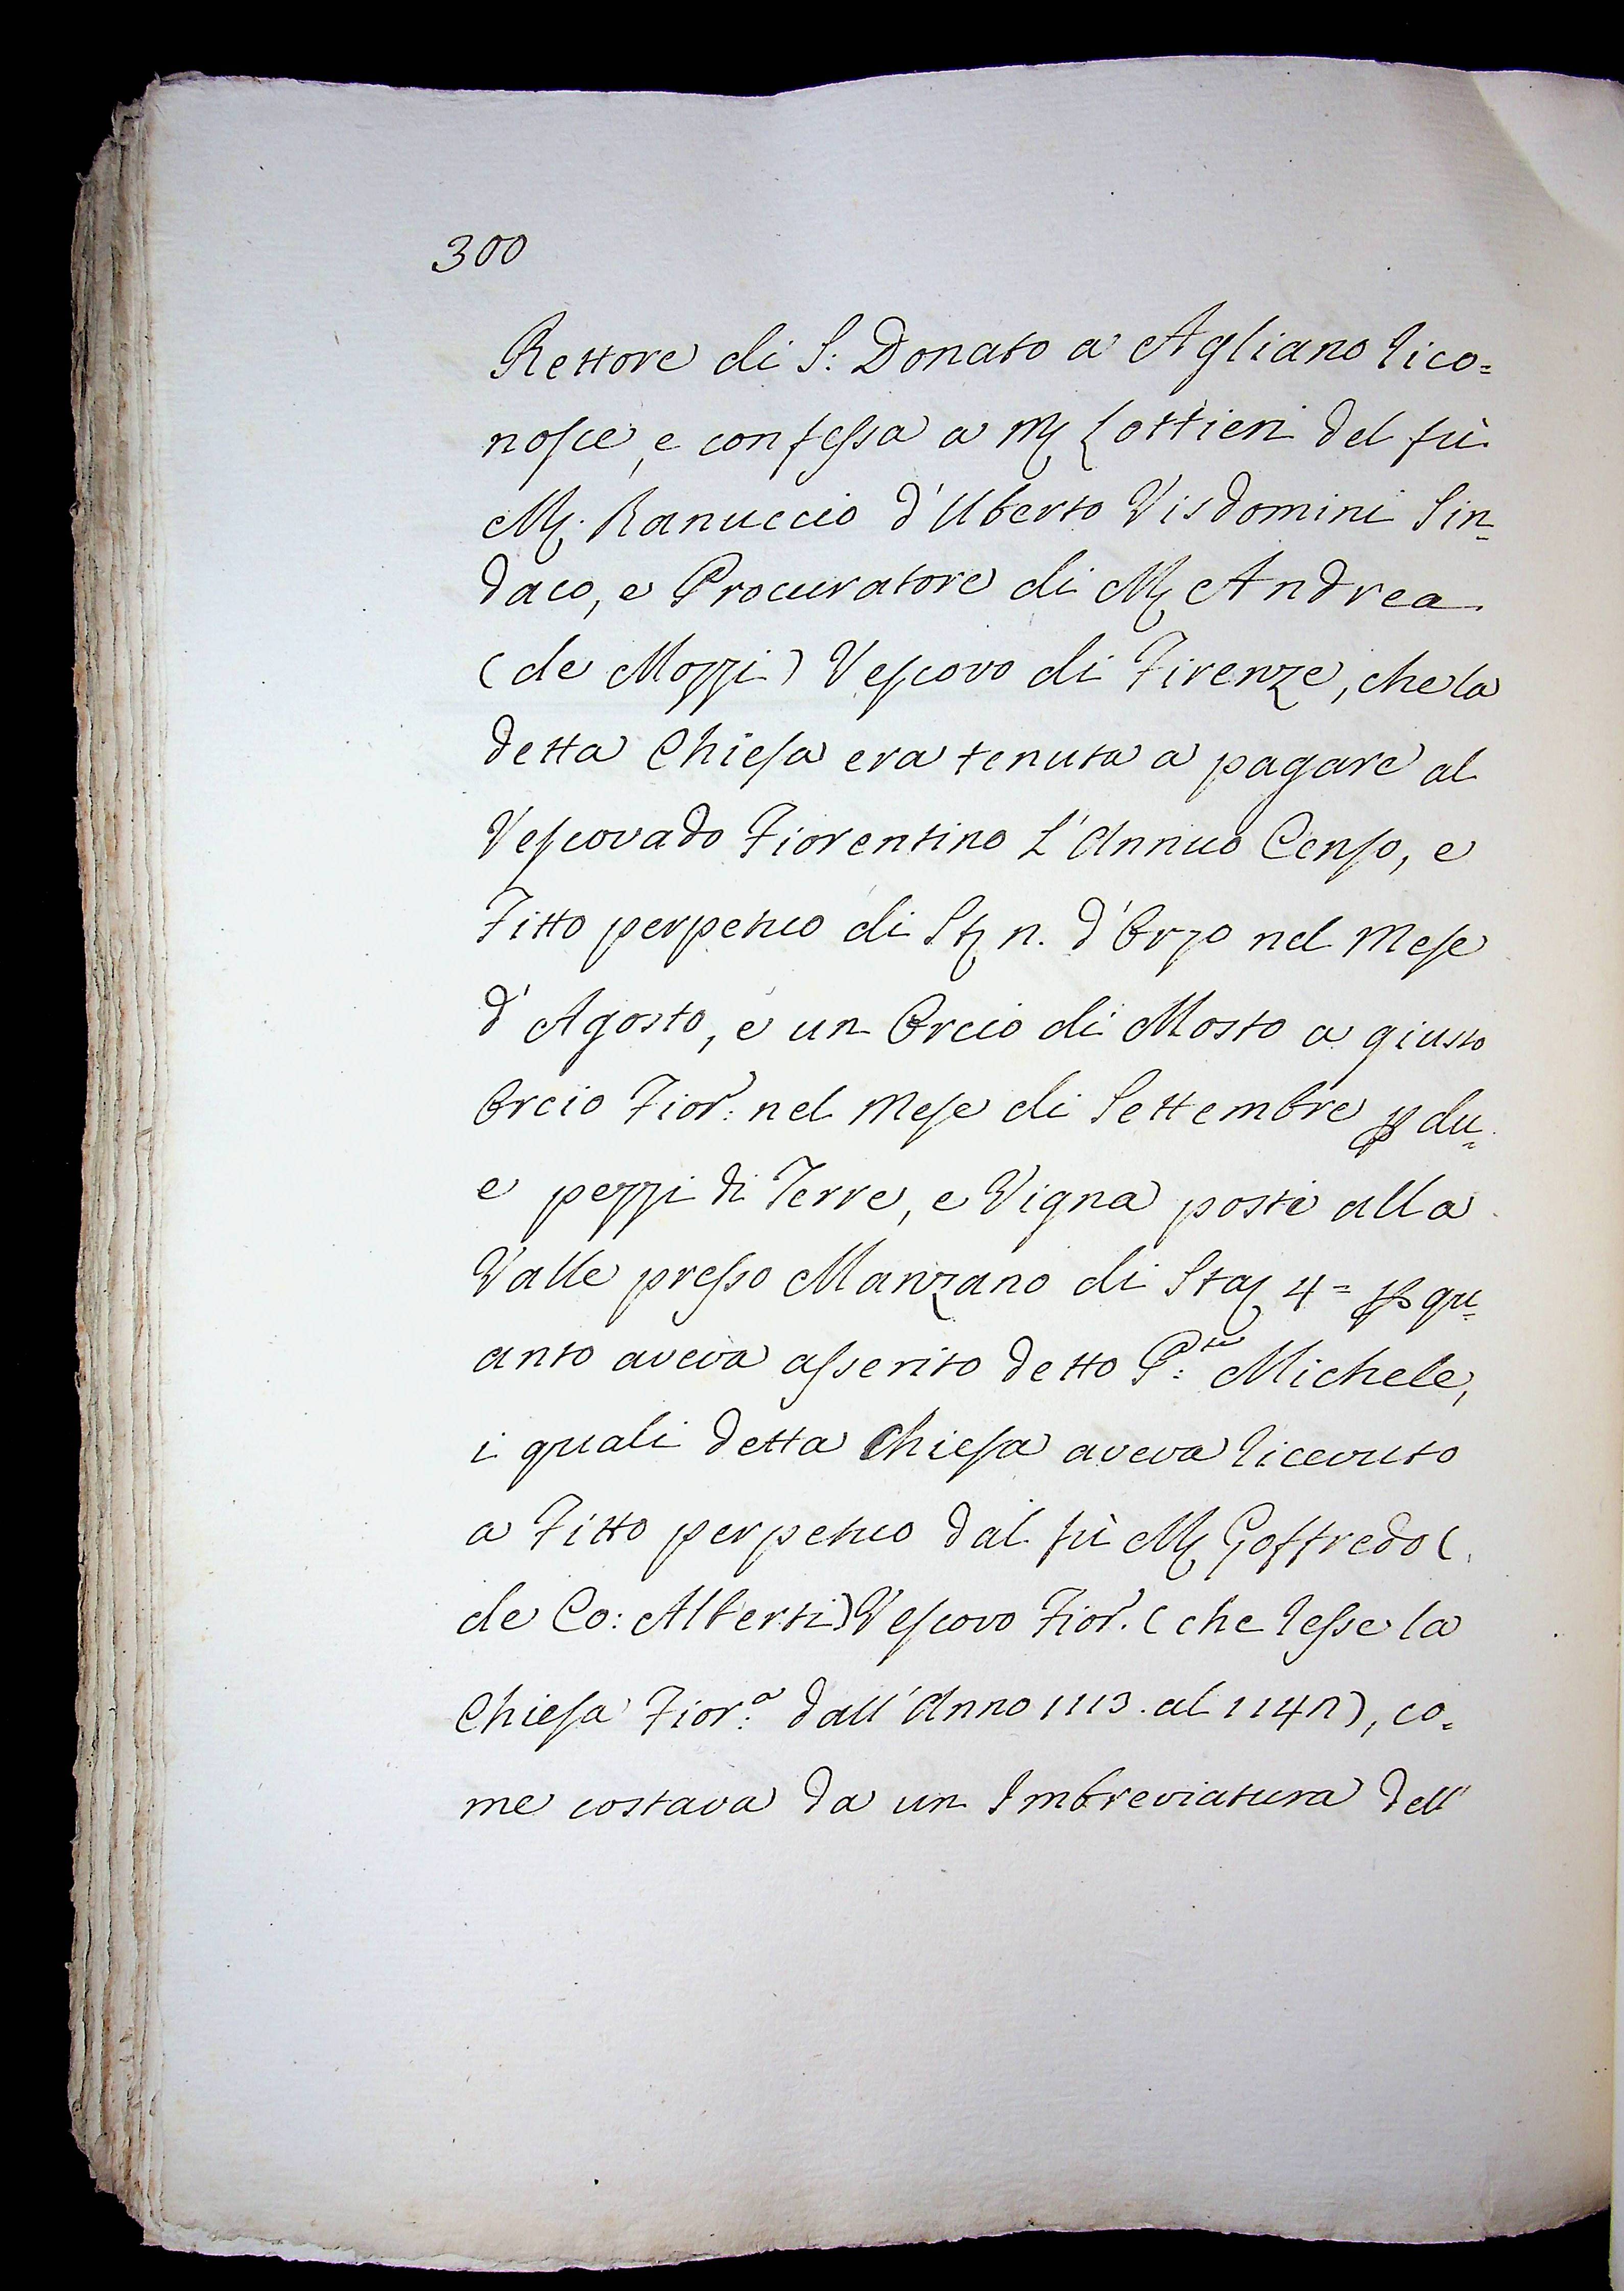 300
Rettore di S: Donato a Agliano rico=
nosce, e confessa a M. Lottieri del fù
M. Ranuccio d'Uberto Visdomini Sin=
daco, e Procuratore di M. Andrea
(de Mozzi) Vescovo di Firenze, che la
detta Chiesa era tenuta a pagare al
Vescovado Fiorentino l'Annuo Censo, e
Fitto perpetuo di St. n. d'Orzo nel Mese
d'Agosto, e un Orcio di Mosto a giusto
Orcio Fior: nel Mese di Settembre p du=
e pezzi di Terre, e Vigna posti alla
Valle presso Manzano di Staj 4= p qu=
anto aveva asserito detto P:te Michele,
i quali detta Chiesa aveva ricevuto
a Fitto perpetuo dal fù M. Goffredo (
de Co: Alberti) Vescovo Fior. (che resse la
Chiesa Fior:a dall'Anno 1113. al 114n), co=
me costava da un Imbreviatura dell'